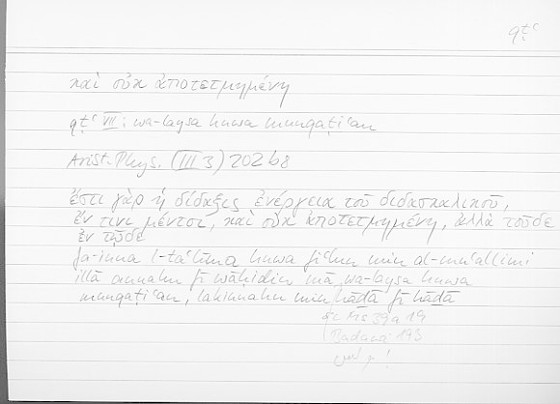 qṭʿ
καὶ οὐκ ἀποτετμημένη
qṭʿ VII: wa-laysa huwa munqaṭiʿan
Arist. Phys. (III 3) 202 b8
ἔστι γὰρ ἡ δίδαξις ἐνέργεια τοῦ διδασκαλικοῦ,
ἔν τινι μέντοι, καὶ οὐκ ἀποτετμημένη, ἀλλὰ τοῦδε
ἐν τῷδε
fa-inna l-taʿlīma huwa fiʿlun min al-muʿallimi
illā annahu fī wāḥidin mā, wa-laysa huwa
munqaṭiʿan, lākinnahu min hāḏā fī hāḏā
Ms 39a 19
Badawī 193